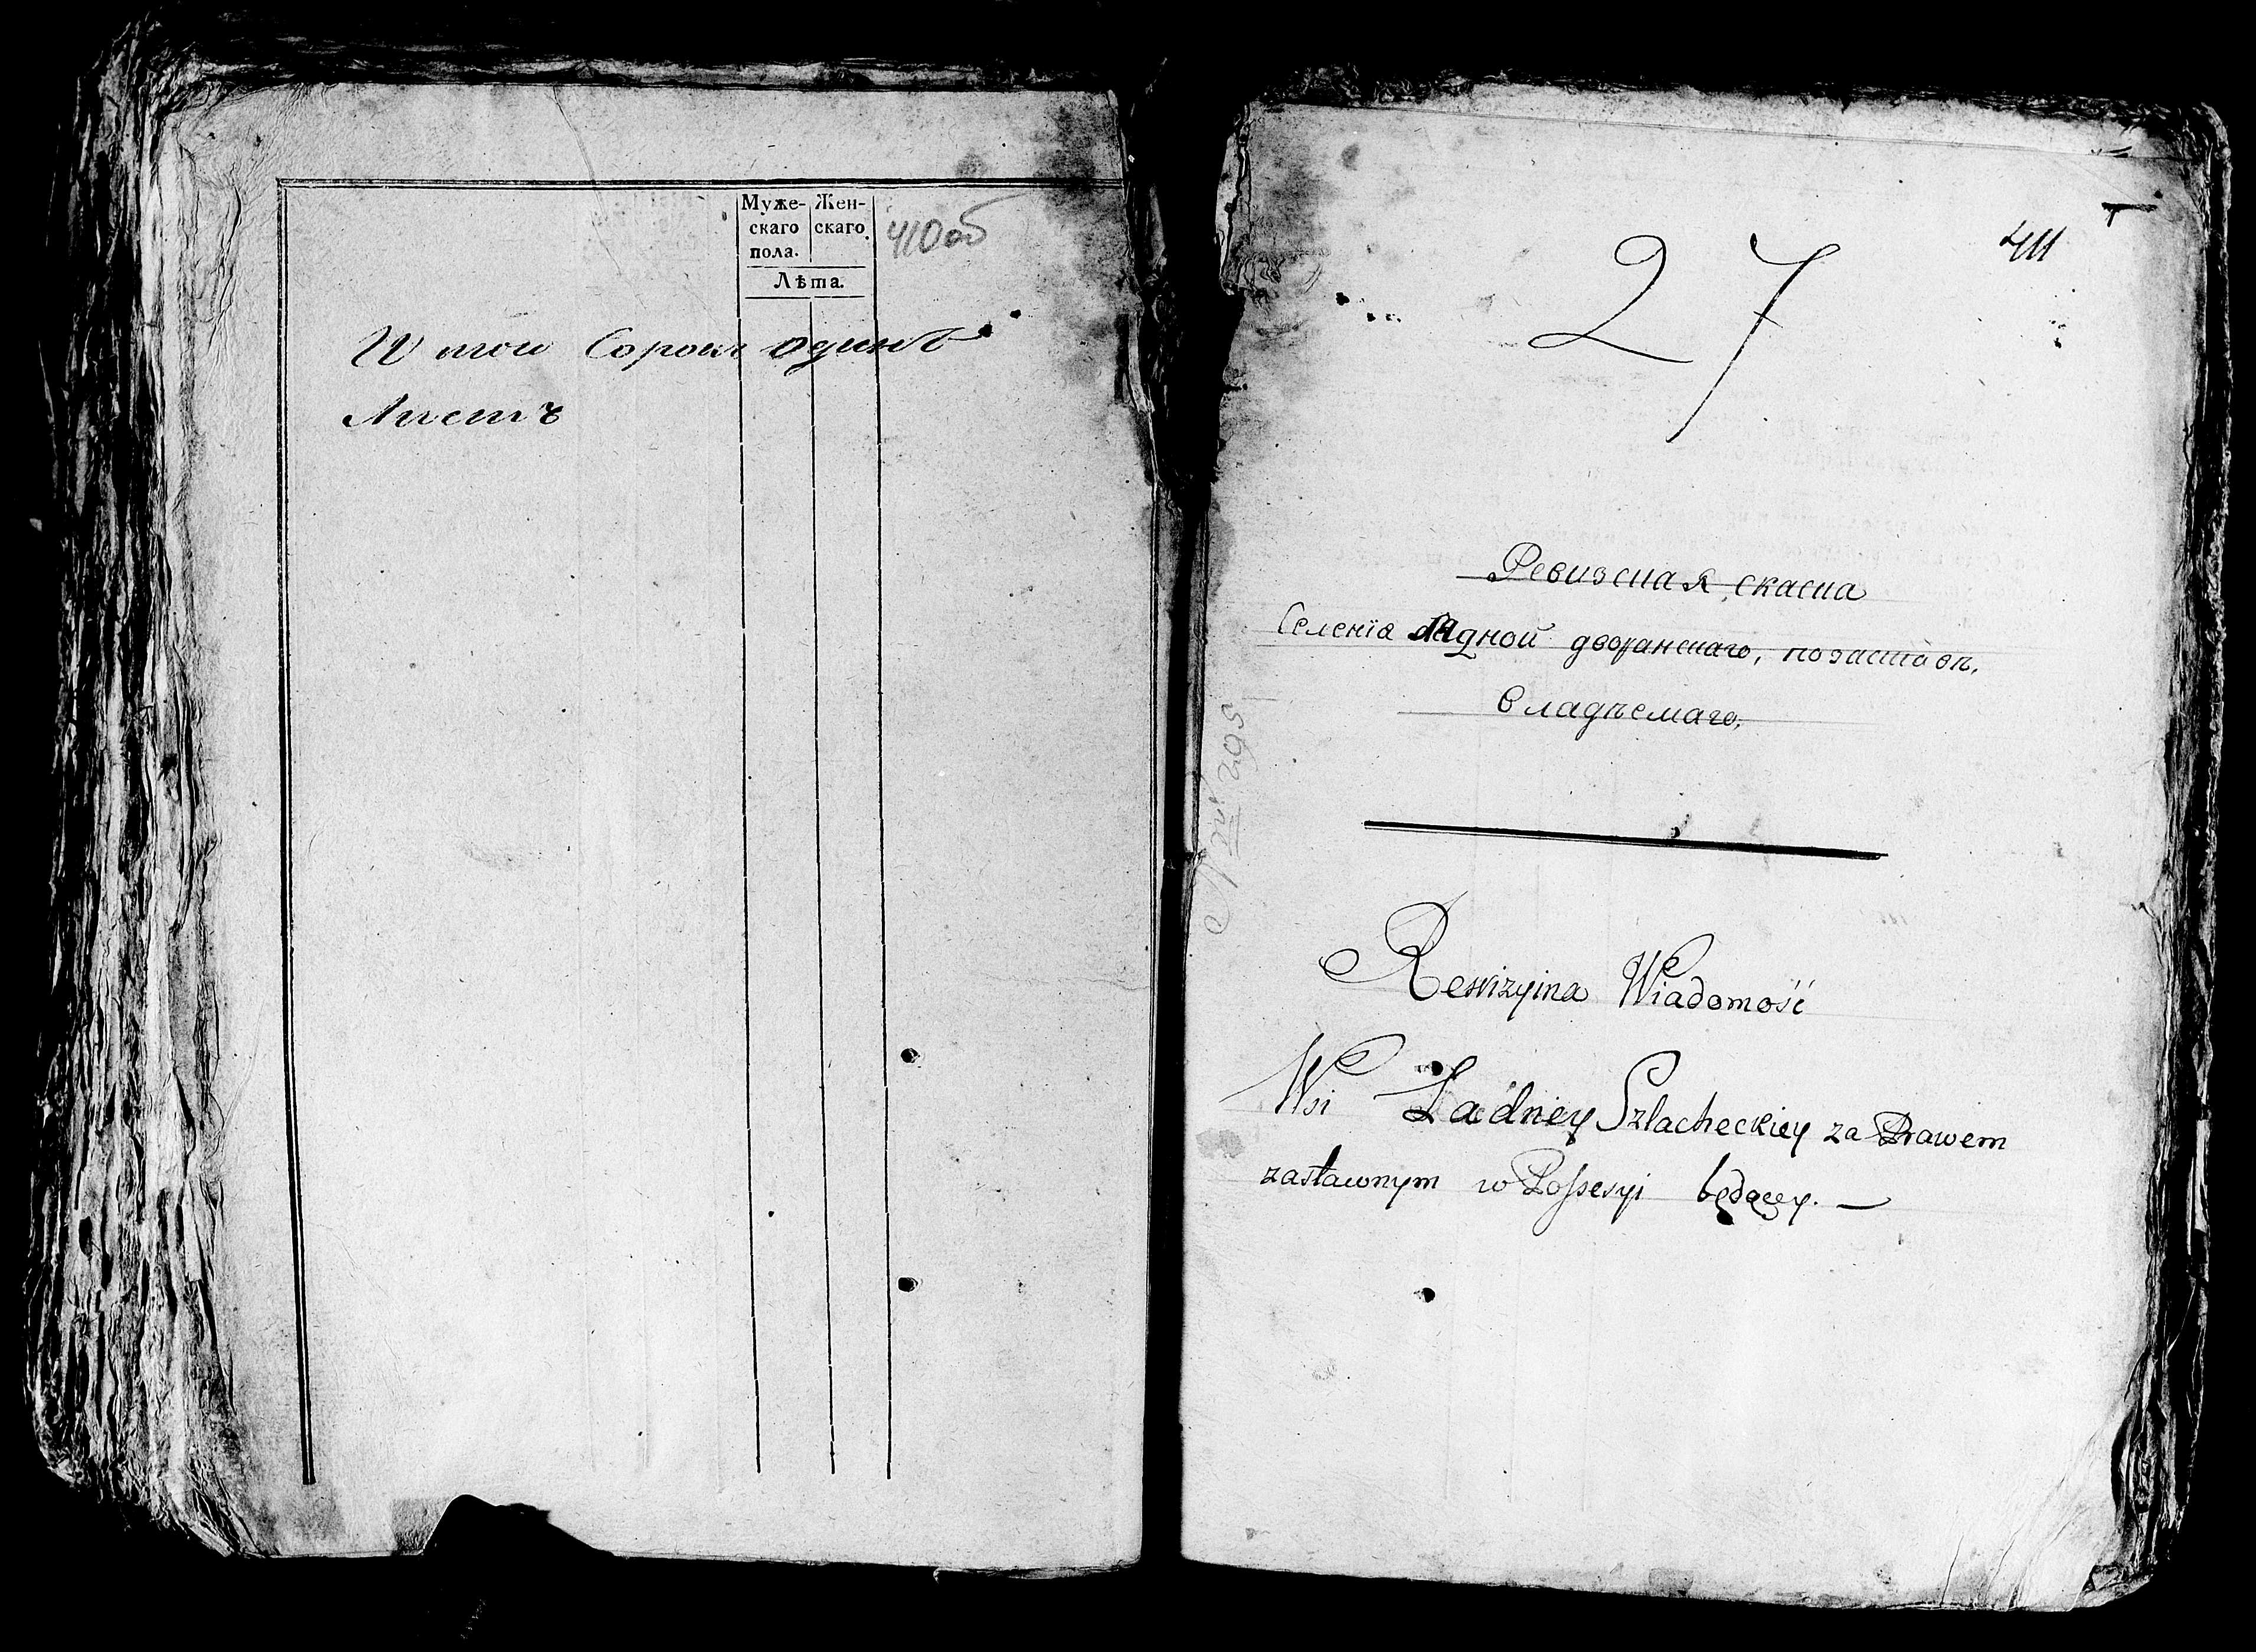 Муже-
скаго
пола.
Жен-
скаго
Лѣта.
410об
Итои Сорокъ одинъ
Листъ
411
27
Ревизкая скаска
Селенїа Ладной дворанскаго, по застав.
владѣемаго.
295
Rewizyina Wiadomość
Wsi Ładney Szlacheckiey za Prawem
zastawnym w Possesyi będącey. —